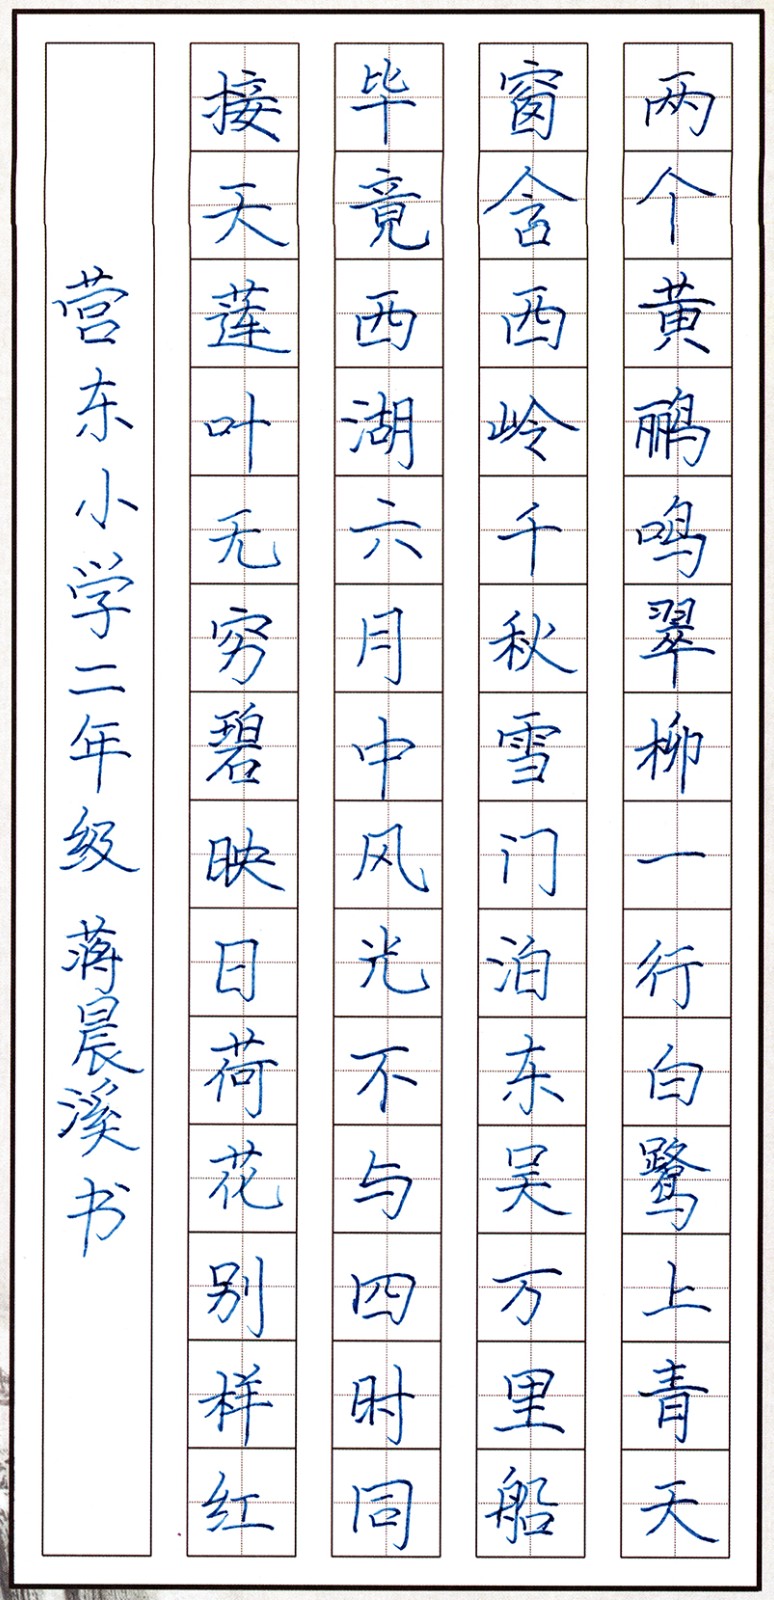 两个黄鹂鸣翠柳一行白鹭上青天
窗含西岭千秋雪门泊东吴万里船
毕竟西湖六月中风光不与四时同
接天莲叶无穷碧映日荷花别样红
营东小学二年级 蒋晨溪书